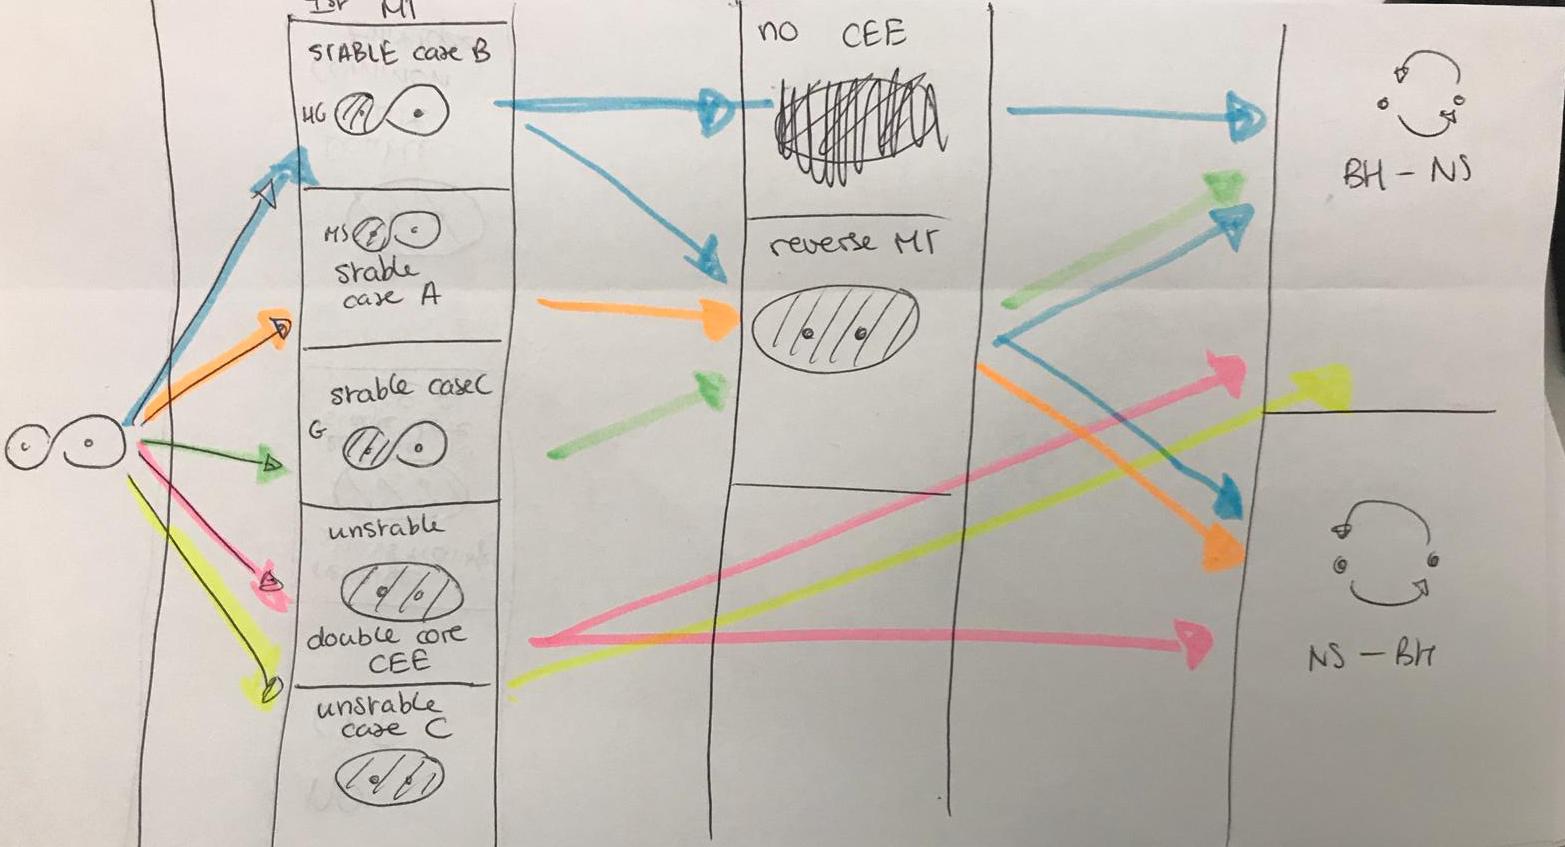 1st MT
STABLE case B
HG
MS
stable
case A
stable case C
G
unstable
double core
CEE
unstable
case C
no CEE
reverse MT
BH - NS
NS - BH